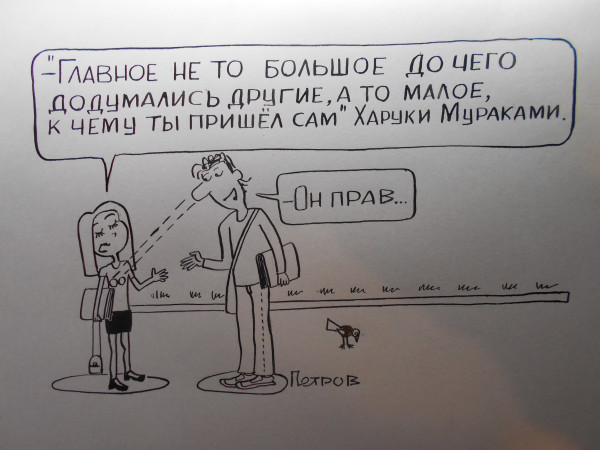 -"Главное не то большое до чего
додумались другие, а то малое,
к чему ты пришёл сам" Харуки Мураками.
-Он прав...
Петров